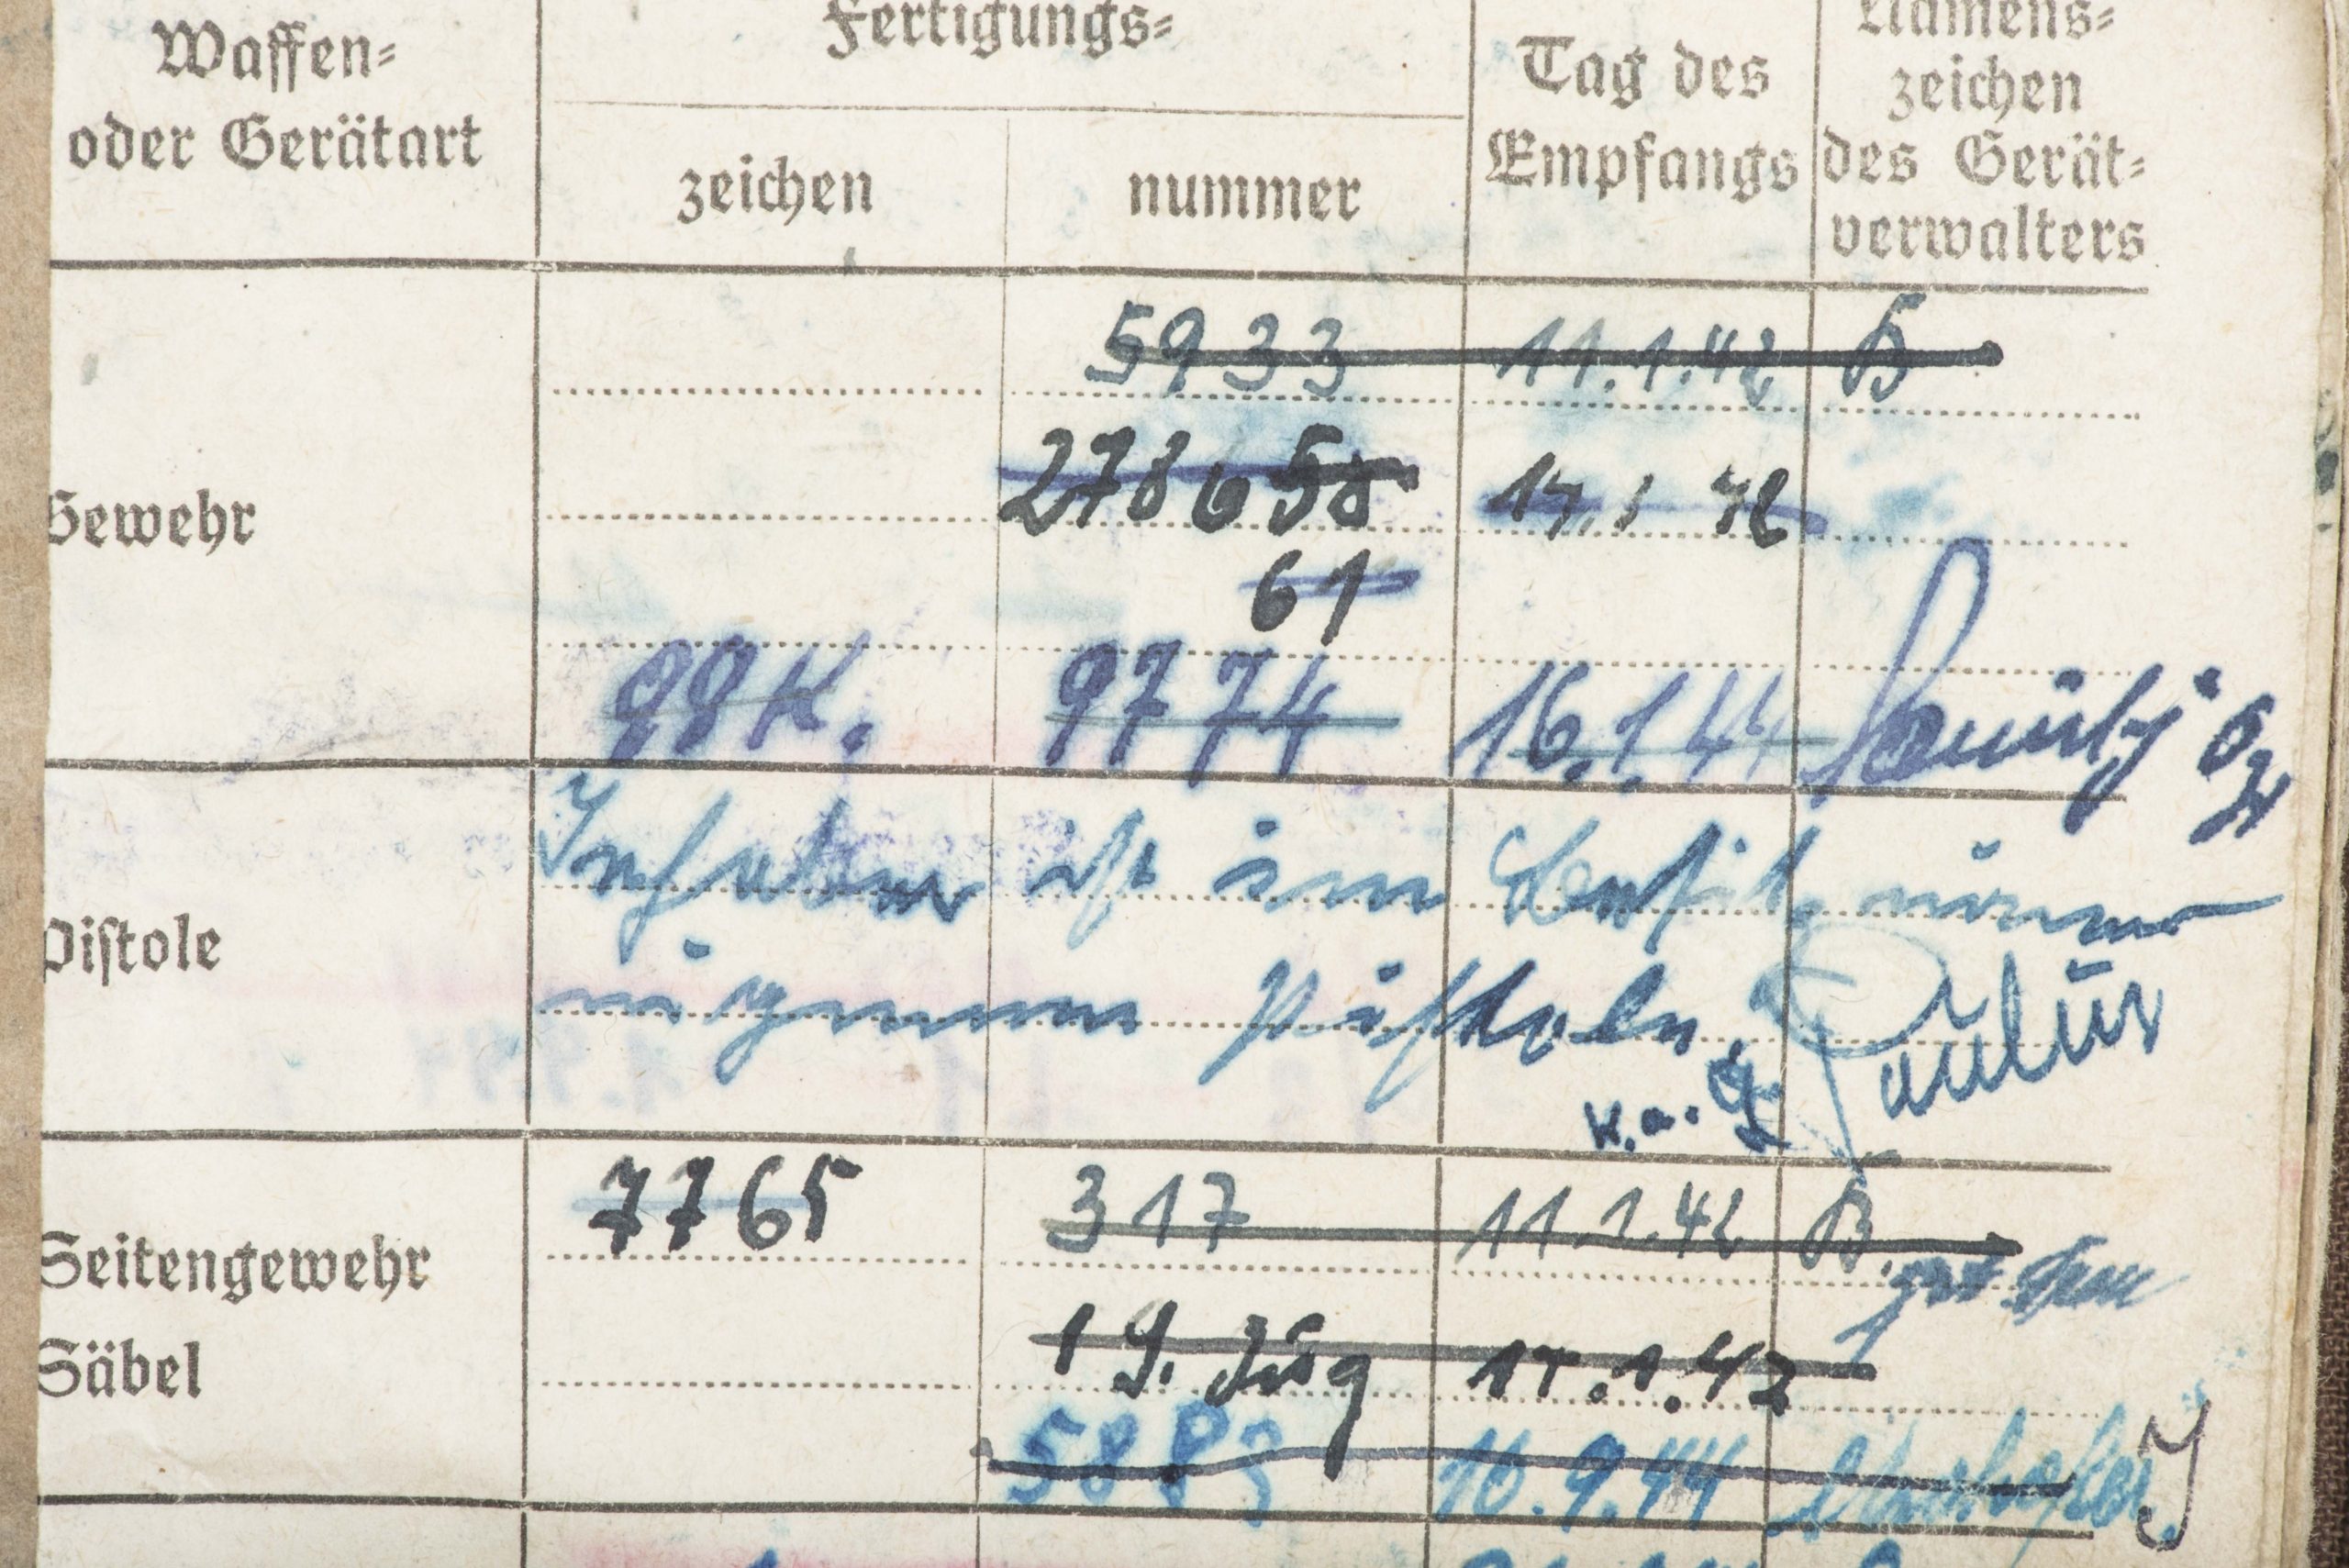 Waffen-
oder Gerätart
Fertigungs-
zeichen
nummer
Tag des
Empfangs
Namens-
zeichen
des Gerät-
verwalters
Gewehr
5933 11.1.42 B
278658 14.1 42
61
98 K. 9774 16.1.44
Pistole
Inhaber ist im Besitz einer
eigenen Pistole.
Paulus
Seitengewehr
Säbel
7765 317 11.1.42 B.
19. 14.1.42
5889 16.9.44